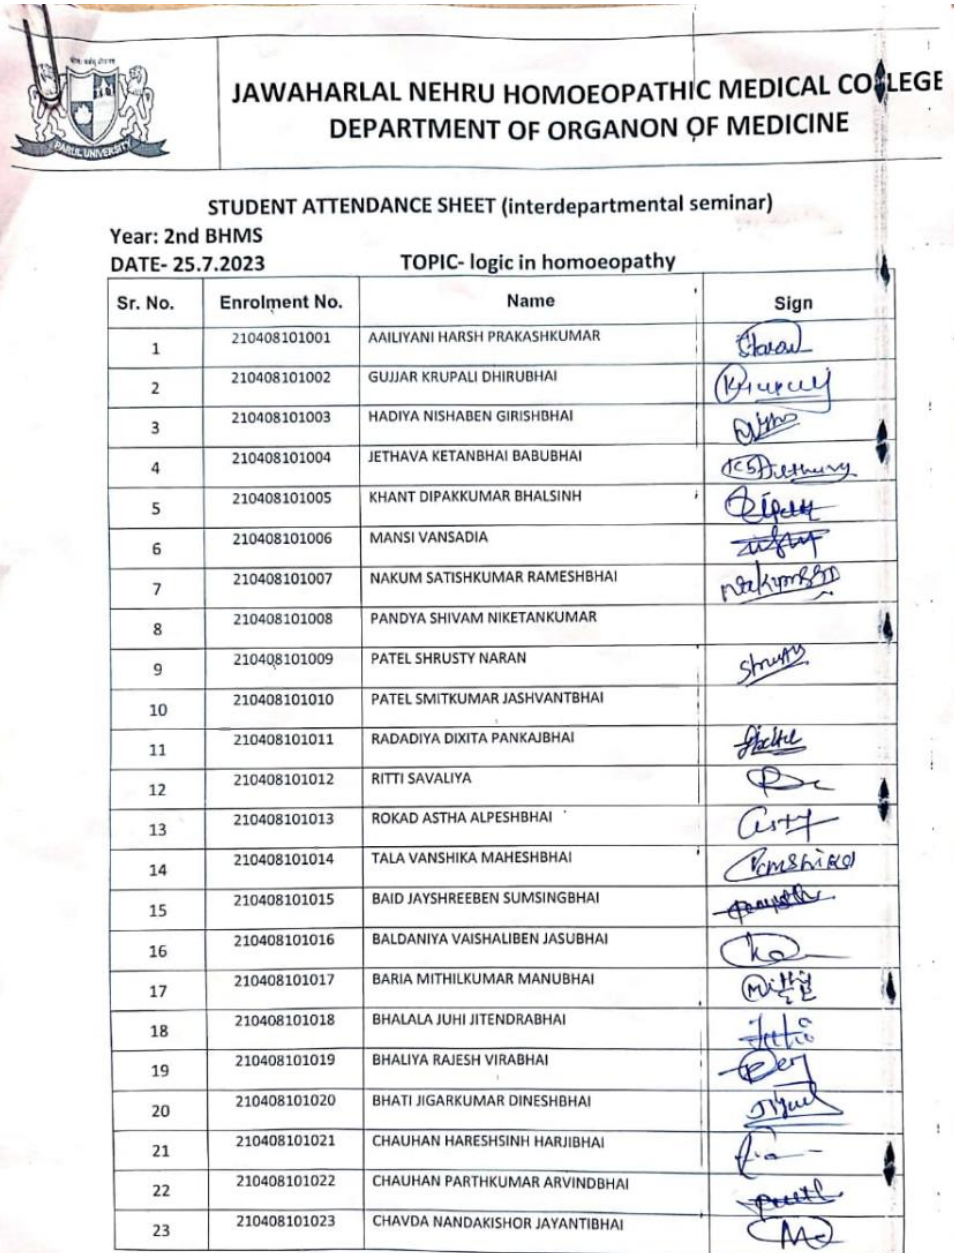 PARUL UNIVERSITY
JAWAHARLAL NEHRU HOMOEOPATHIC MEDICAL COLLEGE
DEPARTMENT OF ORGANON OF MEDICINE
STUDENT ATTENDANCE SHEET (interdepartmental seminar)
Year: 2nd BHMS
DATE- 25.7.2023 TOPIC- logic in homoeopathy
Sr. No. Enrolment No. Name Sign
1 210408101001 AAILIYANI HARSH PRAKASHKUMAR
2 210408101002 GUJJAR KRUPALI DHIRUBHAI
3 210408101003 HADIYA NISHABEN GIRISHBHAI
4 210408101004 JETHAVA KETANBHAI BABUBHAI
5 210408101005 KHANT DIPAKKUMAR BHALSINH
6 210408101006 MANSI VANSADIA
7 210408101007 NAKUM SATISHKUMAR RAMESHBHAI
8 210408101008 PANDYA SHIVAM NIKETANKUMAR
9 210408101009 PATEL SHRUSTY NARAN Shrusty
10 210408101010 PATEL SMITKUMAR JASHVANTBHAI
11 210408101011 RADADIYA DIXITA PANKAJBHAI
12 210408101012 RITTI SAVALIYA
13 210408101013 ROKAD ASTHA ALPESHBHAI
14 210408101014 TALA VANSHIKA MAHESHBHAI
15 210408101015 BAID JAYSHREEBEN SUMSINGBHAI
16 210408101016 BALDANIYA VAISHALIBEN JASUBHAI
17 210408101017 BARIA MITHILKUMAR MANUBHAI
18 210408101018 BHALALA JUHI JITENDRABHAI
19 210408101019 BHALIYA RAJESH VIRABHAI
20 210408101020 BHATI JIGARKUMAR DINESHBHAI
21 210408101021 CHAUHAN HARESHSINH HARJIBHAI
22 210408101022 CHAUHAN PARTHKUMAR ARVINDBHAI
23 210408101023 CHAVDA NANDAKISHOR JAYANTIBHAI